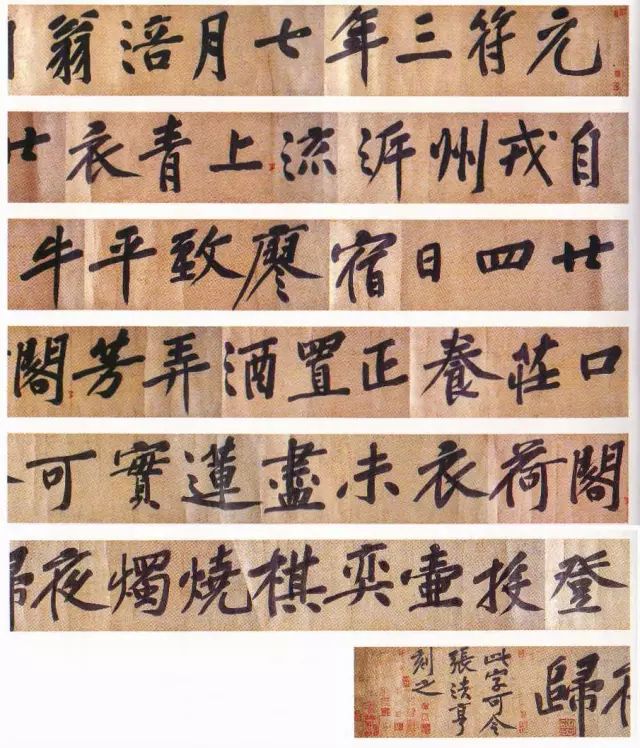 元符三年七月涪翁
自戎州泝流上青衣廿
廿四日宿廖致平牛
口莊養正置酒弄芳閣
閣荷衣未盡蓮實可
登投壺弈棋燒燭夜
歸
此字可令
張法亨
刻之